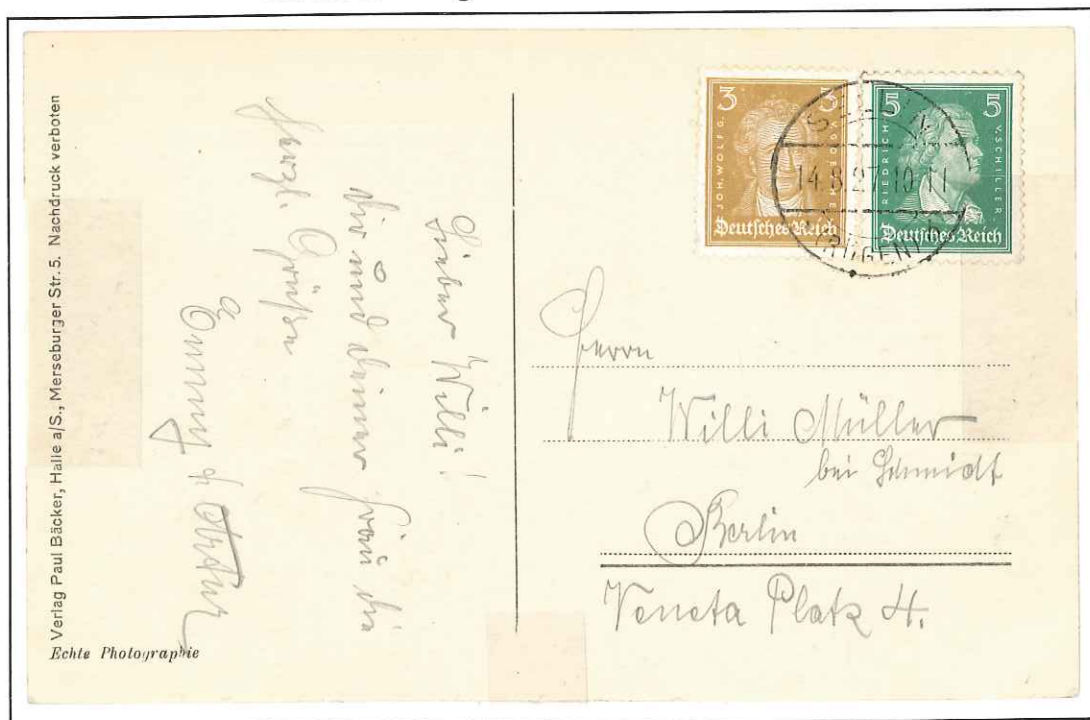 Verlag Paul Bäcker, Halle a/S., Merseburger Str. 5. Nachdruck verboten
Echte Photographie
Lieber Willi!
Dir und deiner Frau die
herzl. Grüße
Emmy & Artur
3 3
JOH. WOLFG. V. GOETHE
Deutsches Reich
5 5
FRIEDRICH V. SCHILLER
Deutsches Reich
SELLIN
14.8.27.10-11
(RÜGEN)
Herrn
Willi Müller
bei Schmidt
Berlin
Veneta Platz 4.